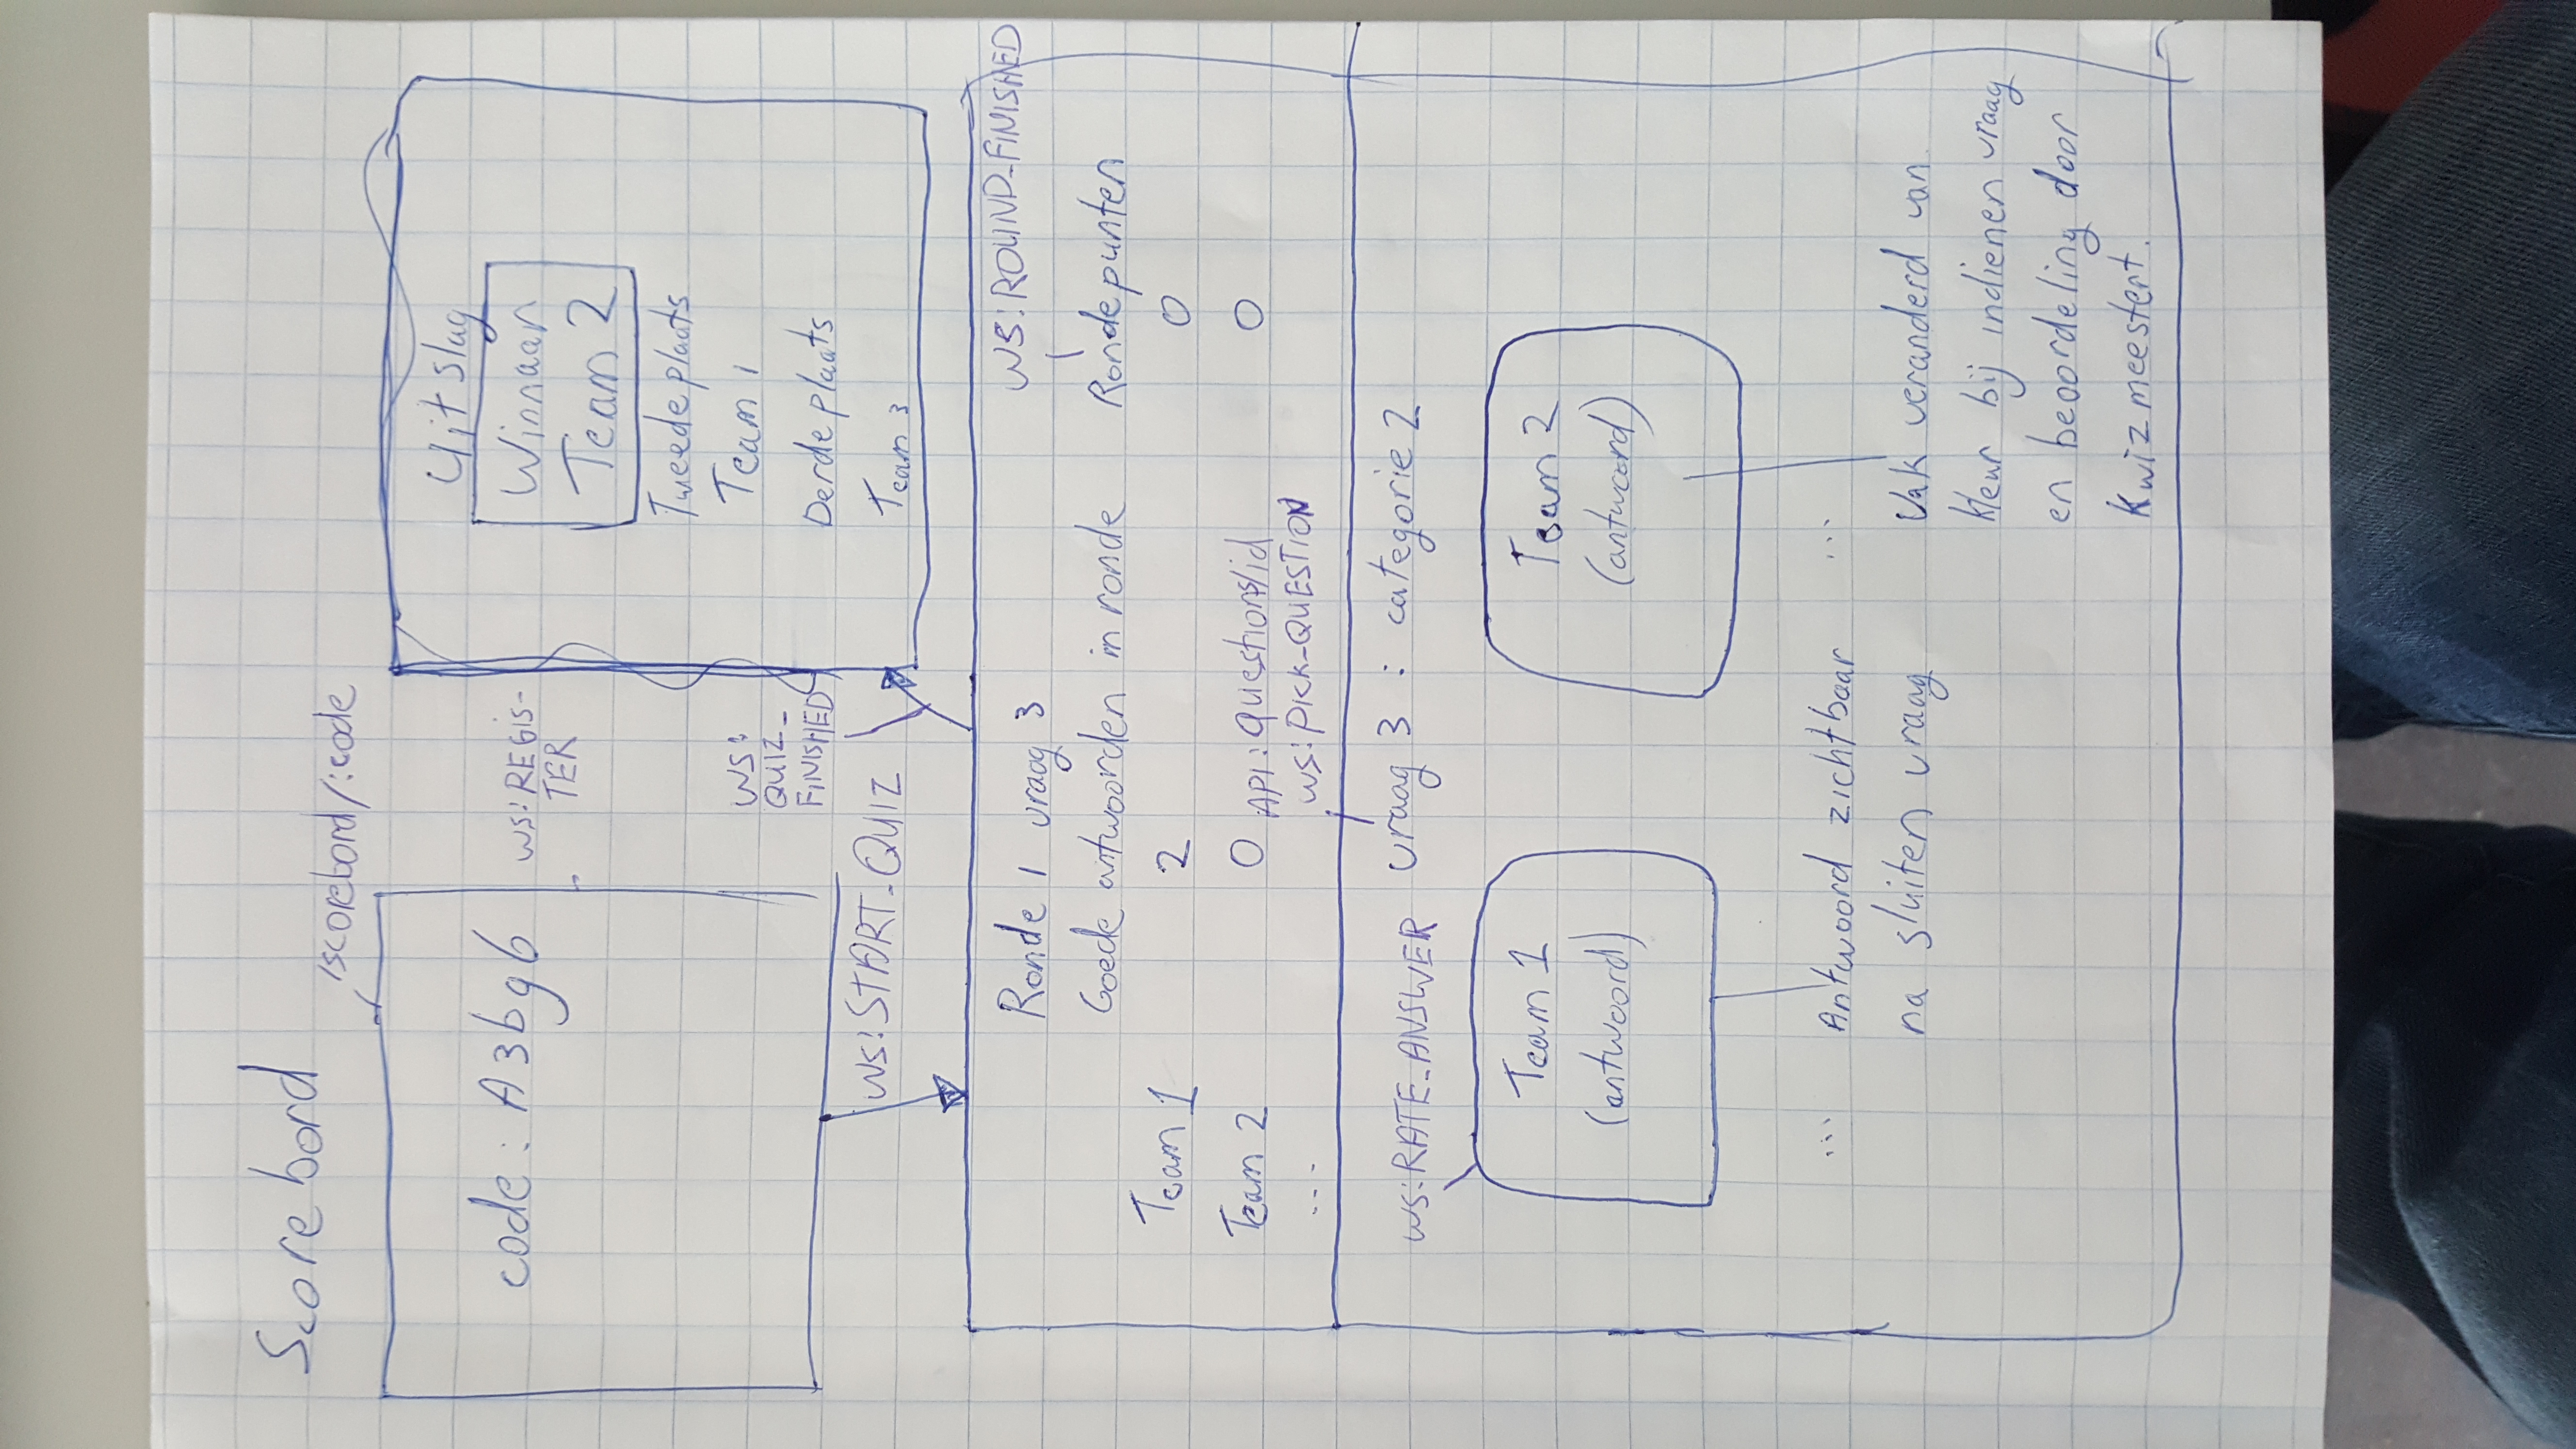 Scorebord
/scorebord/:code
code: A3bg6
WS:REGIS-
TER
Uitslag
Winnaar
Team 2
Tweede plaats
Team 1
Derde plaats
Team 3
WS:
QUIZ_
FINISHED
WS:START_QUIZ
WS:ROUND_FINISHED
Ronde 1 vraag 3
Goede antwoorden in ronde Rondepunten
Team 1 2 0
Team 2 0 0
...
API:questions/id
WS:PICK_QUESTION
WS:RATE_ANSWER
vraag 3 : categorie 2
Team 1
(antwoord)
Team 2
(antwoord)
... ...
Antwoord zichtbaar
na sluiten vraag
Vak veranderd van
kleur bij indienen vraag
en beoordeling door
Kwizmeestert.